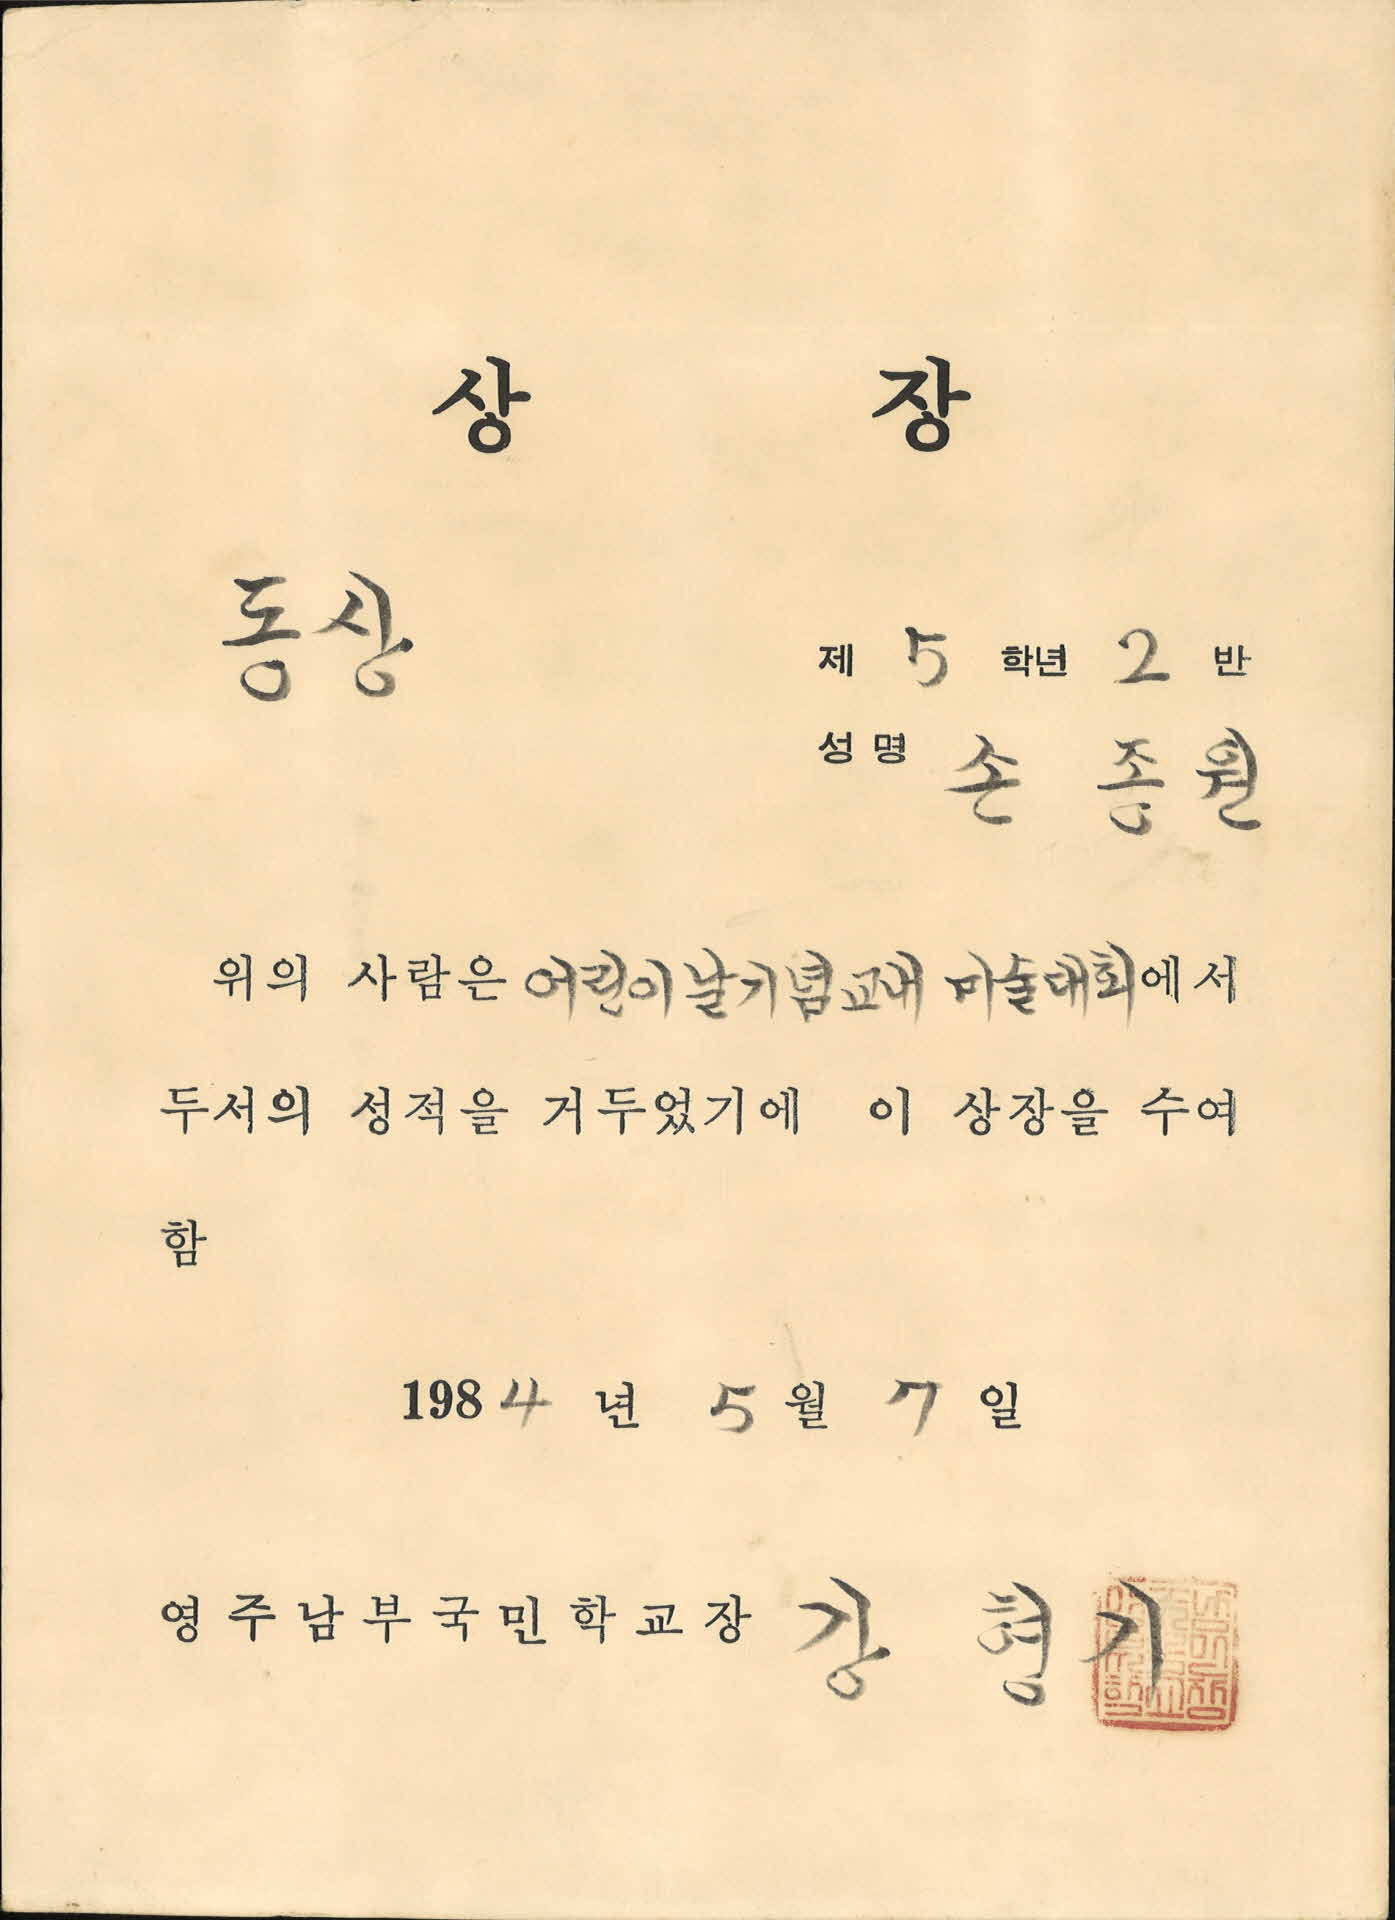 상 장
동상
제 5 학년 2 반
성명 손 종 원
위의 사람은 어린이날기념교내 미술대회에서
두서의 성적을 거두었기에 이 상장을 수여
함
1984 년 5 월 7 일
영주남부국민학교장 강 형 기